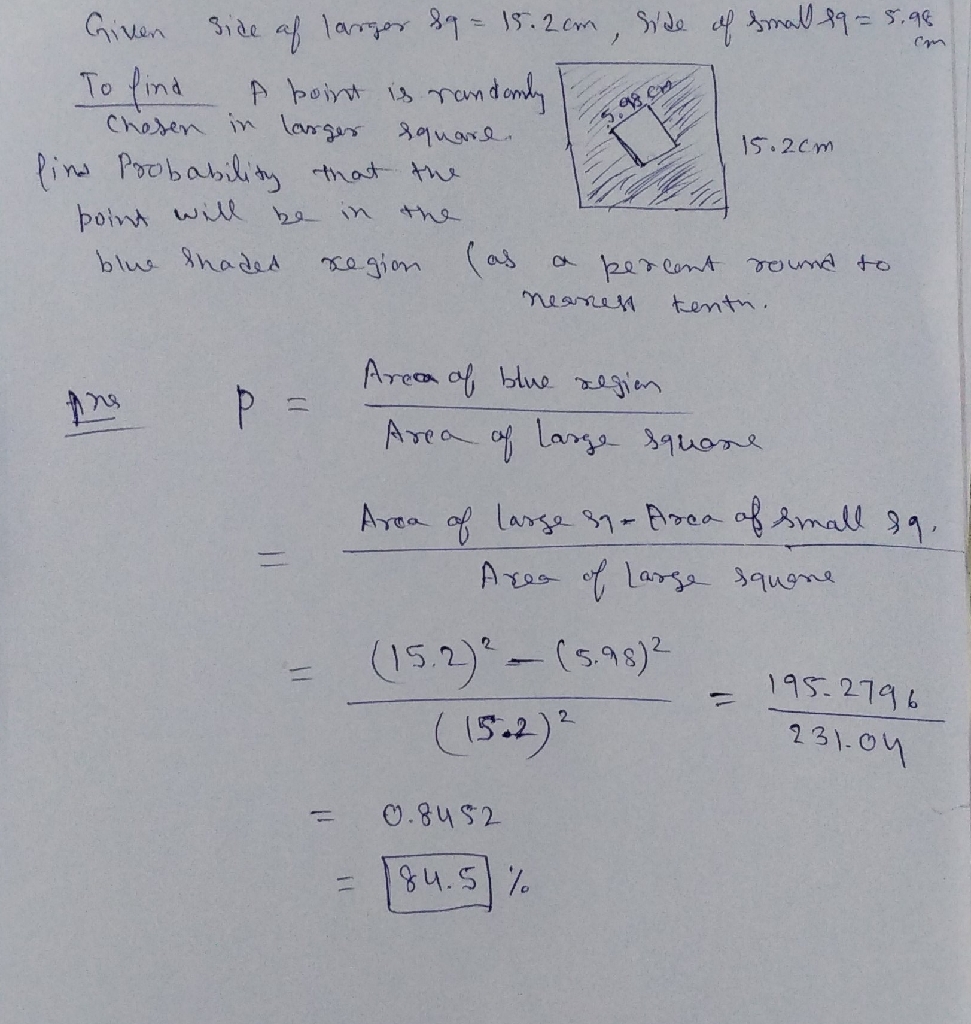 Given Side of larger sq = 15.2cm, Side of small sq = 5.98 cm
To find A point is randomly
chosen in larger square.
find Probability that the
point will be in the
blue shaded region (as a percent round to
nearest tenth.
5.98 cm
15.2cm
Ans P = Area of blue region
Area of large square
= Area of large sq - Area of small sq.
Area of large square
= (15.2)² - (5.98)²
(15.2)²
= 195.2796
231.04
= 0.8452
= 84.5 %